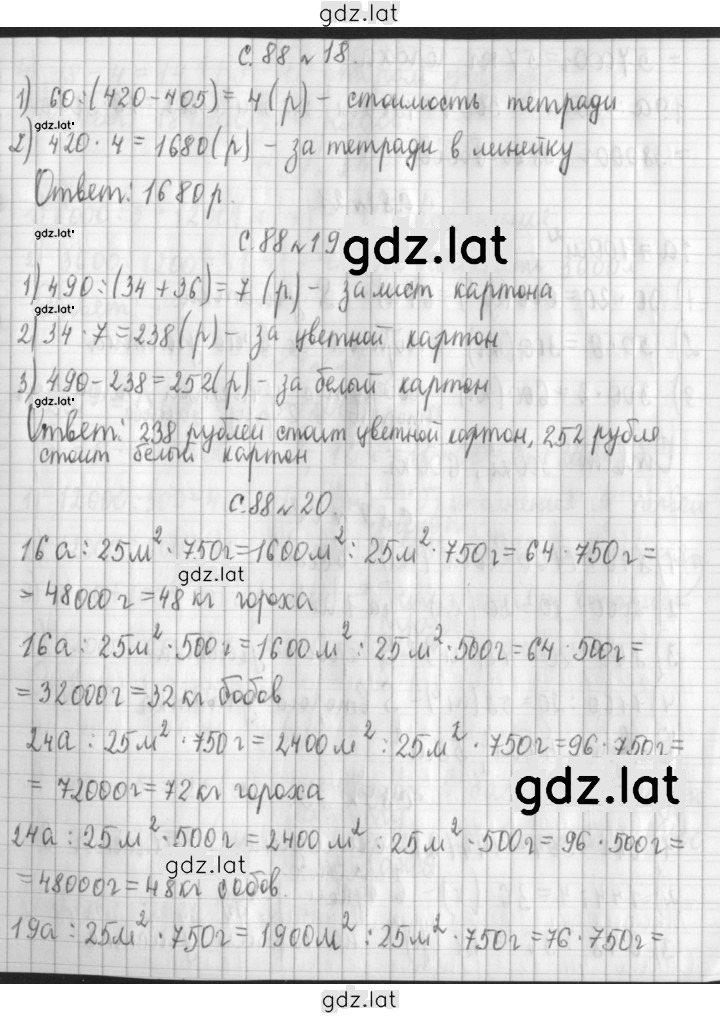 gdz.lat
С.88 № 18.
1) 60:(420-405)= 4(р) - стоимость тетради
gdz.lat
2) 420·4=1680(р) - за тетради в линейку
Ответ: 1680р.
gdz.lat
С.88 № 19
gdz.lat
1) 490:(34+36)=7 (р.) - за лист картона
2) 34·7=238(р) - за цветной картон
3) 490-238=252(р) - за белый картон
gdz.lat
Ответ: 238 рублей стоит цветной картон, 252 рубля
стоит белый картон
С.88 № 20.
16а:25м²·750г=1600м²:25м²·750г=64·750г=
gdz.lat
= 48000г=48кг гороха
16а:25м²·500г=1600м²:25м²·500г=64·500г=
=32000г=32кг бобов
24а:25м²·750г=2400м²:25м²·750г=96·750г=
= 72000г=72кг гороха
gdz.lat
24а:25м²·500г=2400м²:25м²·500г=96·500г=
gdz.lat
=48000г=48кг бобов.
19а:25м²·750г=1900м²:25м²·750г=76·750г=
gdz.lat